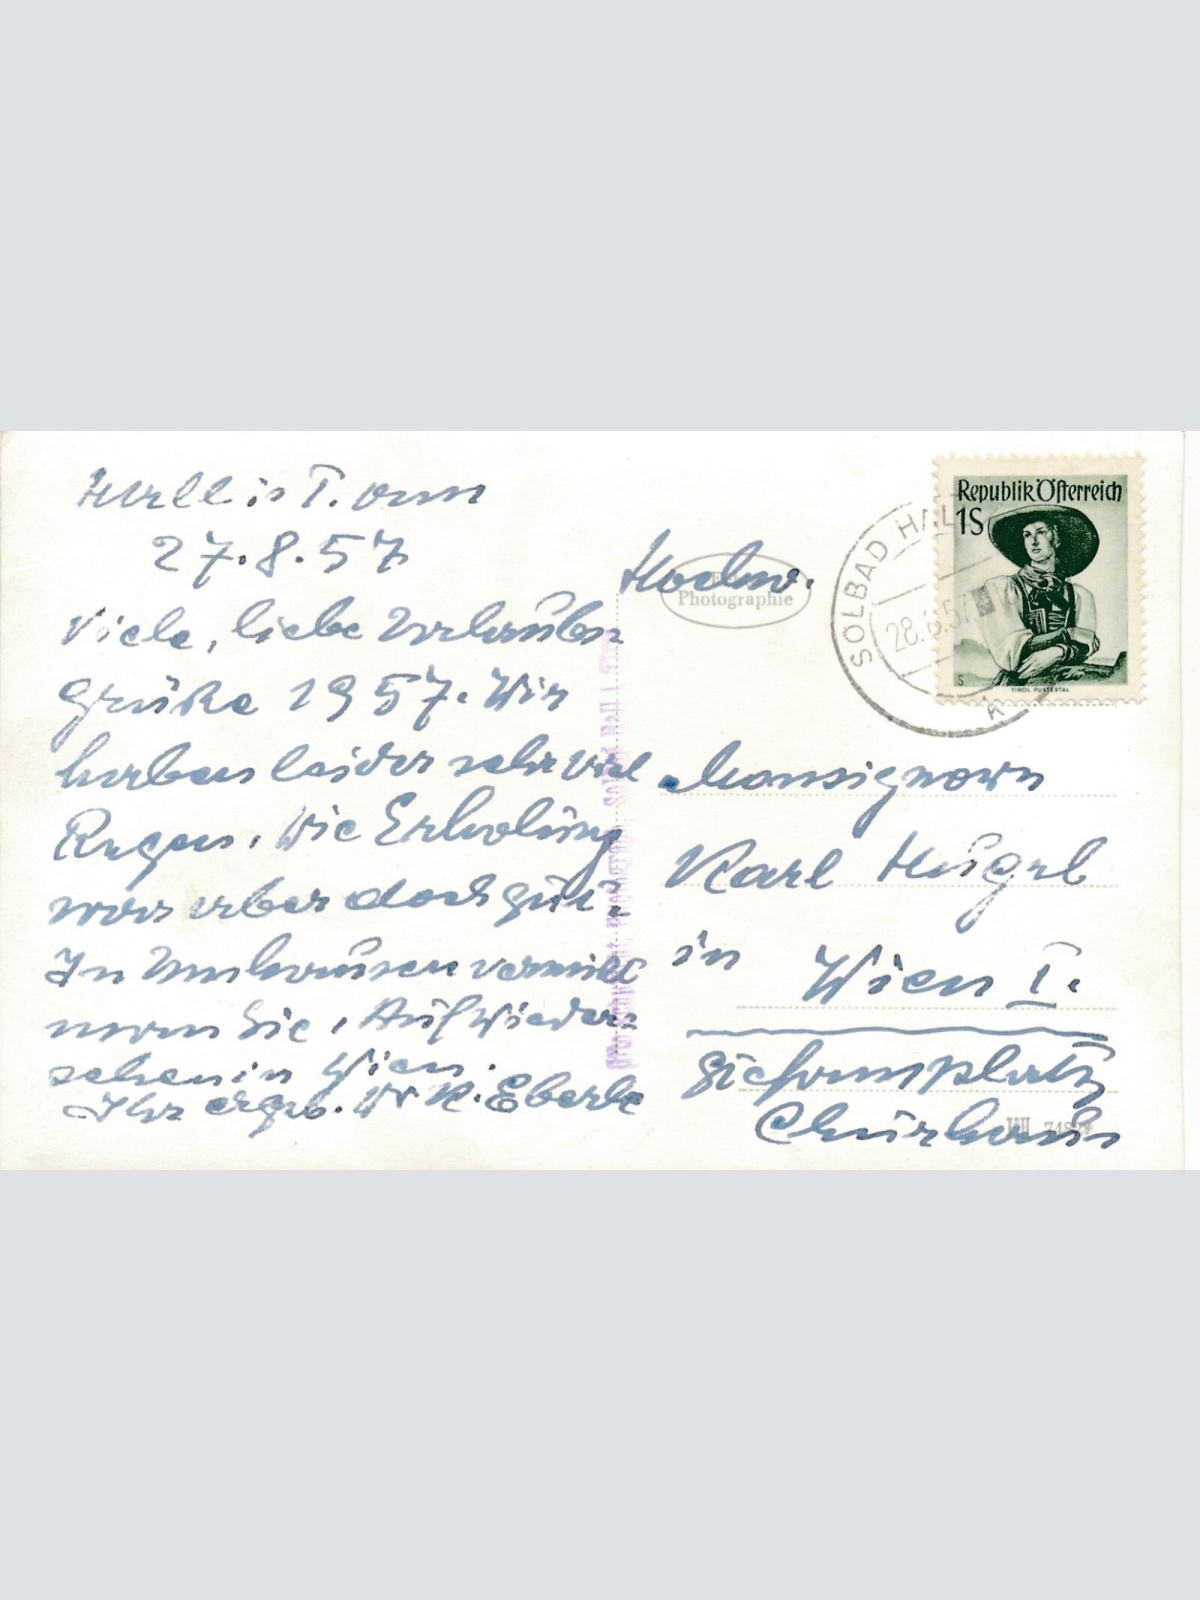 Hall in T. am
27.8.57
Viele, liebe Urlaubs
grüße 1957. Wir
haben leider sehr viel
Regen. Die Erholung
war aber doch gut.
In Umhausen vermißt
man Sie, Auf Wieder
sehen in Wien.
Ihr ergeb. Dr K. Eberle
Hochw.
Photographie
SOLBAD HALL
28.8.57
Republik Österreich
1S
S
TIROL PUSTERTAL
Monsignore
Karl Hügel
in
Wien I.
Stefansplatz
Churhaus